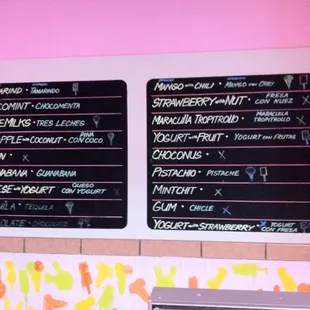 ARIND · TAMARINDO
COMINT · CHOCOMENTA
EMILKS · TRES LECHES
APPLE with COCONUT · PIÑA CON COCO
ABANA · GUANABANA
ESE with YOGURT · QUESO CON YOGURT
UILA · TEQUILA
OLATE · CHOCOLATE
MANGO with CHILI · MANGO con CHILI
STRAWBERRY with NUT · FRESA CON NUEZ
MARACULLA TROPITROLLO · MARACULLA TROPITROLLO
YOGURT with FRUIT · YOGURT CON FRUTAS
CHOCONUS ·
PISTACHIO · PISTACHE
MINTCHIT ·
GUM · CHICLE
YOGURT with STRAWBERRY YOGURT CON FRESA